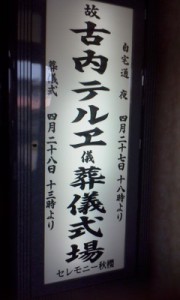 自宅通夜 四月二十七日 十八時より
故 古内テルエ儀 葬儀式場
葬儀式 四月二十八日 十三時より
セレモニー秋櫻